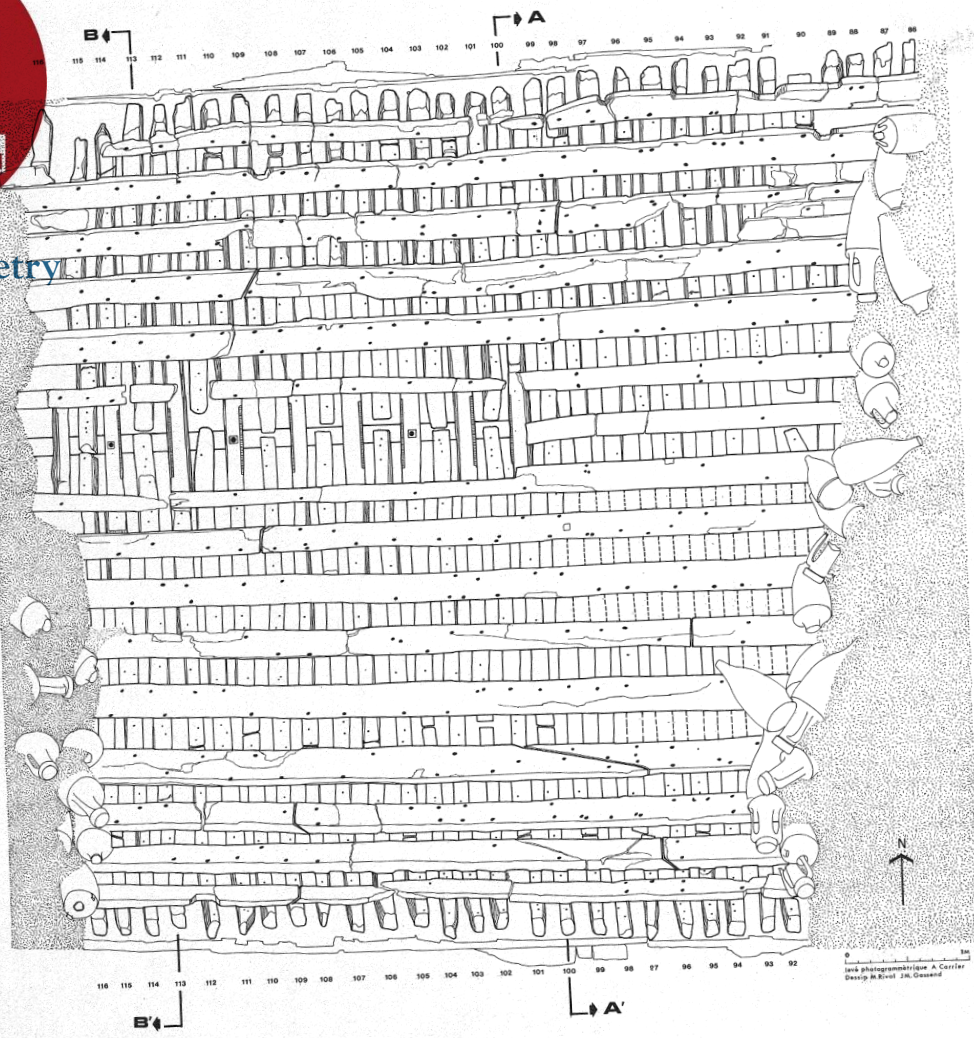 B A
116 115 114 113 112 111 110 109 108 107 106 105 104 103 102 101 100 99 98 97 96 95 94 93 92 91 90 89 88 87 86
etry
N
0 5M
levé photogrammétrique A Carrier
Dessin M.Rival J.M.Gassend
116 115 114 113 112 111 110 109 108 107 106 105 104 103 102 101 100 99 98 27 96 95 94 93 92
B' A'